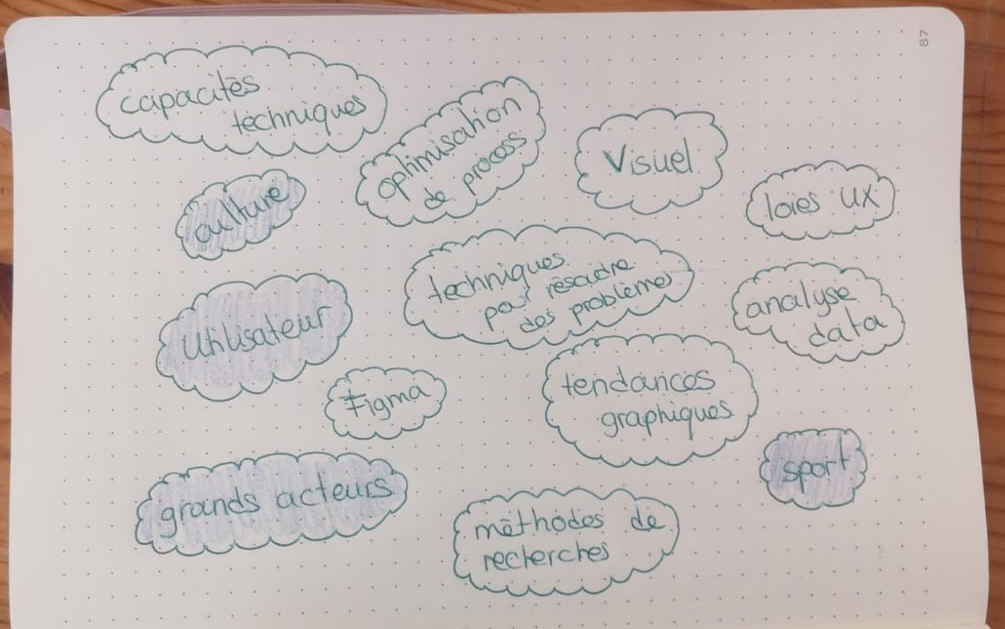 87
capacités
techniques
optimisation
de process
Visuel
culture
loies UX
techniques
pour résoudre
des problèmes
utilisateur
analyse
data
Figma
tendances
graphiques
sport
grands acteurs
méthodes de
recherches